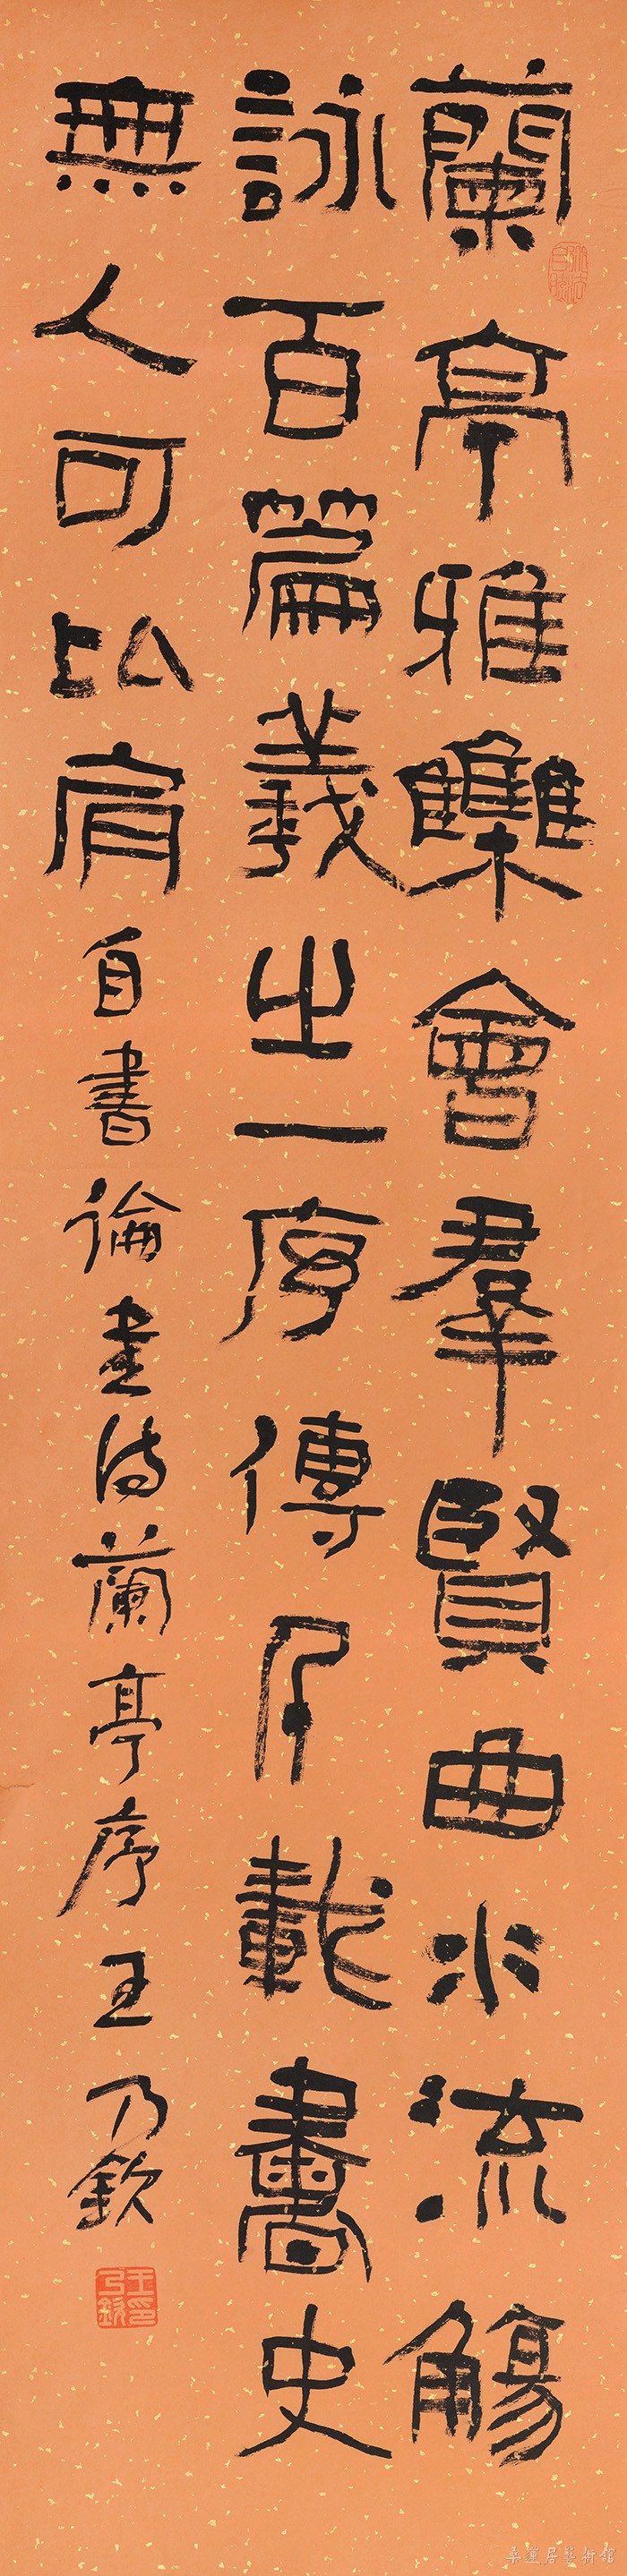 蘭亭雅雧會羣賢曲水流觴
詠百篇羲之一序傳千載書史
無人可比肩自書論書詩蘭亭序王乃欽
王乃欽印
桑蓮居藝術館